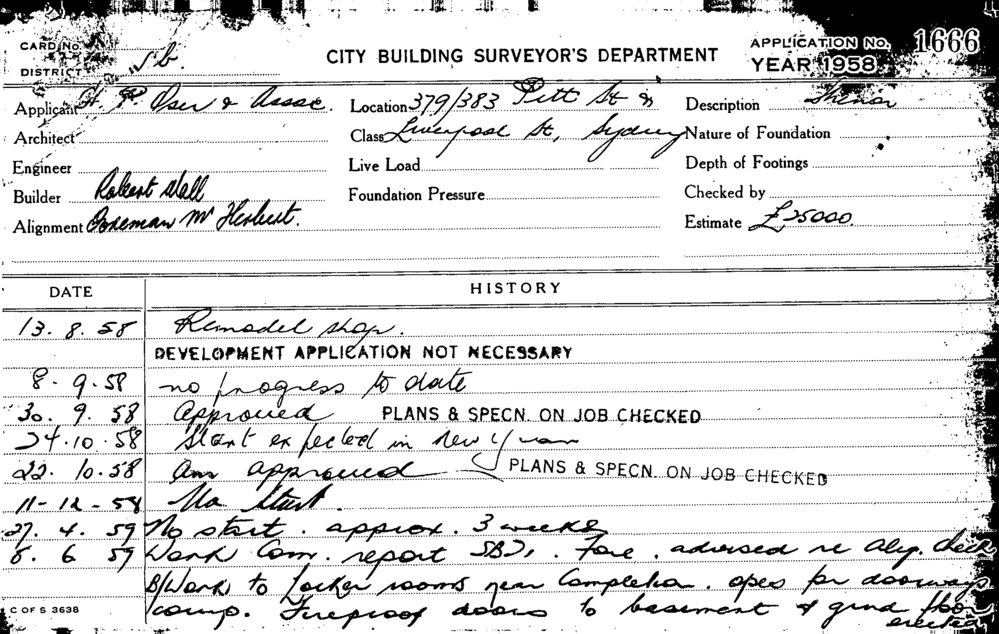 CARD No. CITY BUILDING SURVEYOR'S DEPARTMENT APPLICATION No. 1666
DISTRICT Sb. YEAR 1958
Applicant H. P. Oser & Assoc. Location 379/383 Pitt St & Description
Architect Class Liverpool St, Sydney Nature of Foundation
Engineer Live Load Depth of Footings
Builder Robert Wall Foundation Pressure Checked by
Alignment Foreman Mr Herbert. Estimate £25000.
DATE HISTORY
13. 8. 58 Remodel shop.
DEVELOPMENT APPLICATION NOT NECESSARY
8. 9. 58 no progress to date
30. 9. 58 Approved PLANS & SPECN. ON JOB CHECKED
24. 10. 58 Start expected in new year
22. 10. 58 Am approved PLANS & SPECN. ON JOB CHECKED
11-12-58 No Start.
27. 4. 59 No start. approx. 3 weeks
8. 6 59 Work Com. report SB21. Fore. advised re Alg. check
B/Work to Locker rooms near Completion. opes for doorways
comp. Fireproof doors to basement & grnd floor
erected
C OF S 3638